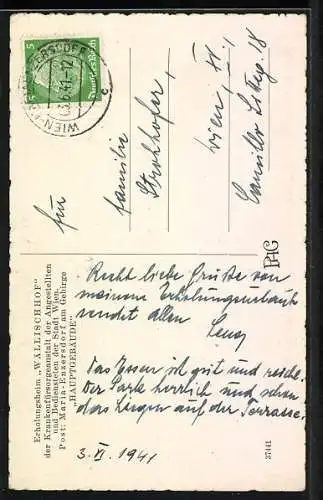 Erholungsheim „WÄLLISCHHOF“
der Krankenfürsorgeanstalt der Angestellten
und Bediensteten der Stadt Wien.
Post: Maria-Enzersdorf am Gebirge
„HAUPTGEBÄUDE“
5
5
Deutsches Reich
WIEN
ERSDORF
41-12
c
Für
Familie
Strohhofer,
Wien,
Camillo
18
PAG
Recht liebe Grüße von
meinem Erholungsurlaub
sendet allen
Das Essen ist gut und reichl.
Der Park herrlich und schön
das Liegen auf der Terrasse.
3. VI. 1941
37441